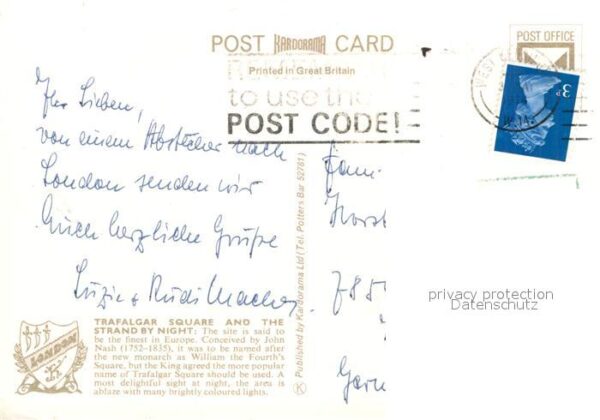 POST KARDORAMA CARD
POST OFFICE
Printed in Great Britain
to use the
POST CODE!
3P
Ihr Lieben,
von einem Abstecher nach
London senden wir
Euch herzliche Grüße
Luzie + Rudi
Fam.
Horst
785
Published by Kardorama Ltd (Tel. Potters Bar 52781)
K
privacy protection
Datenschutz
LONDON
TRAFALGAR SQUARE AND THE
STRAND BY NIGHT: The site is said to
be the finest in Europe. Conceived by John
Nash (1752–1835), it was to be named after
the new monarch as William the Fourth's
Square, but the King agreed the more popular
name of Trafalgar Square should be used. A
most delightful sight at night, the area is
ablaze with many brightly coloured lights.